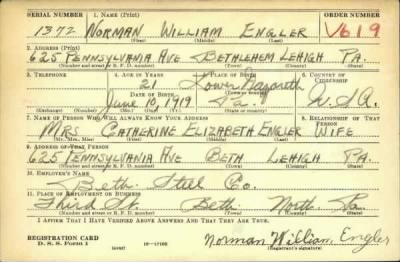 SERIAL NUMBER 1. NAME (Print) ORDER NUMBER
1372 NORMAN WILLIAM ENGLER V619
(First) (Middle) (Last)
2. ADDRESS (Print)
625 PENNSYLVANIA AVE BETHLEHEM LEHIGH PA.
(Number and street or R. F. D. number) (Town) (County) (State)
3. TELEPHONE 4. AGE IN YEARS 5. PLACE OF BIRTH 6. COUNTRY OF CITIZENSHIP
21 Lower Nazareth
DATE OF BIRTH (Town or county)
June 10, 1919 Pa. U.S.A.
(Exchange) (Number) (Mo.) (Day) (Yr.) (State or country)
7. NAME OF PERSON WHO WILL ALWAYS KNOW YOUR ADDRESS 8. RELATIONSHIP OF THAT PERSON
MRS. CATHERINE ELIZABETH ENGLER WIFE
(Mr., Mrs., Miss) (First) (Middle) (Last)
9. ADDRESS OF THAT PERSON
625 PENNSYLVANIA AVE BETH LEHIGH PA.
(Number and street or R. F. D. number) (Town) (County) (State)
10. EMPLOYER'S NAME
Beth. Steel Co.
11. PLACE OF EMPLOYMENT OR BUSINESS
Third St. Beth. North. Pa.
(Number and street or R. F. D. number) (Town) (County) (State)
I AFFIRM THAT I HAVE VERIFIED ABOVE ANSWERS AND THAT THEY ARE TRUE.
REGISTRATION CARD
D. S. S. Form 1 Norman William Engler
(Registrant's signature)